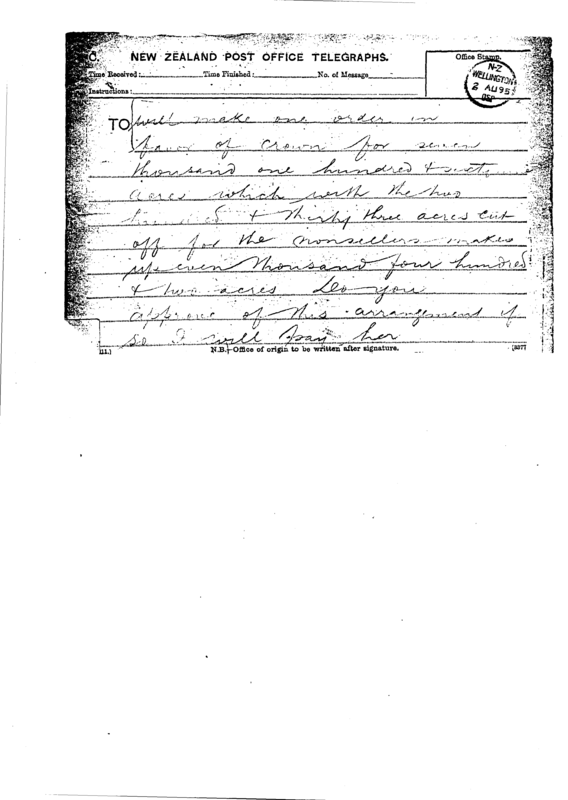 C. NEW ZEALAND POST OFFICE TELEGRAPHS.
Time Received: Time Finished: No. of Message
Instructions:
Office Stamp.
N-Z
WELLINGTON
2 AU 95
TO will make one order in
favor of Crown for seven
thousand one hundred & sixty
acres which with the two
hundred & thirty three acres cut
off for the nonsellers makes
up seven thousand four hundred
& two acres Do you
approve of this arrangement if
so I will pay her
N.B.—Office of origin to be written after signature.